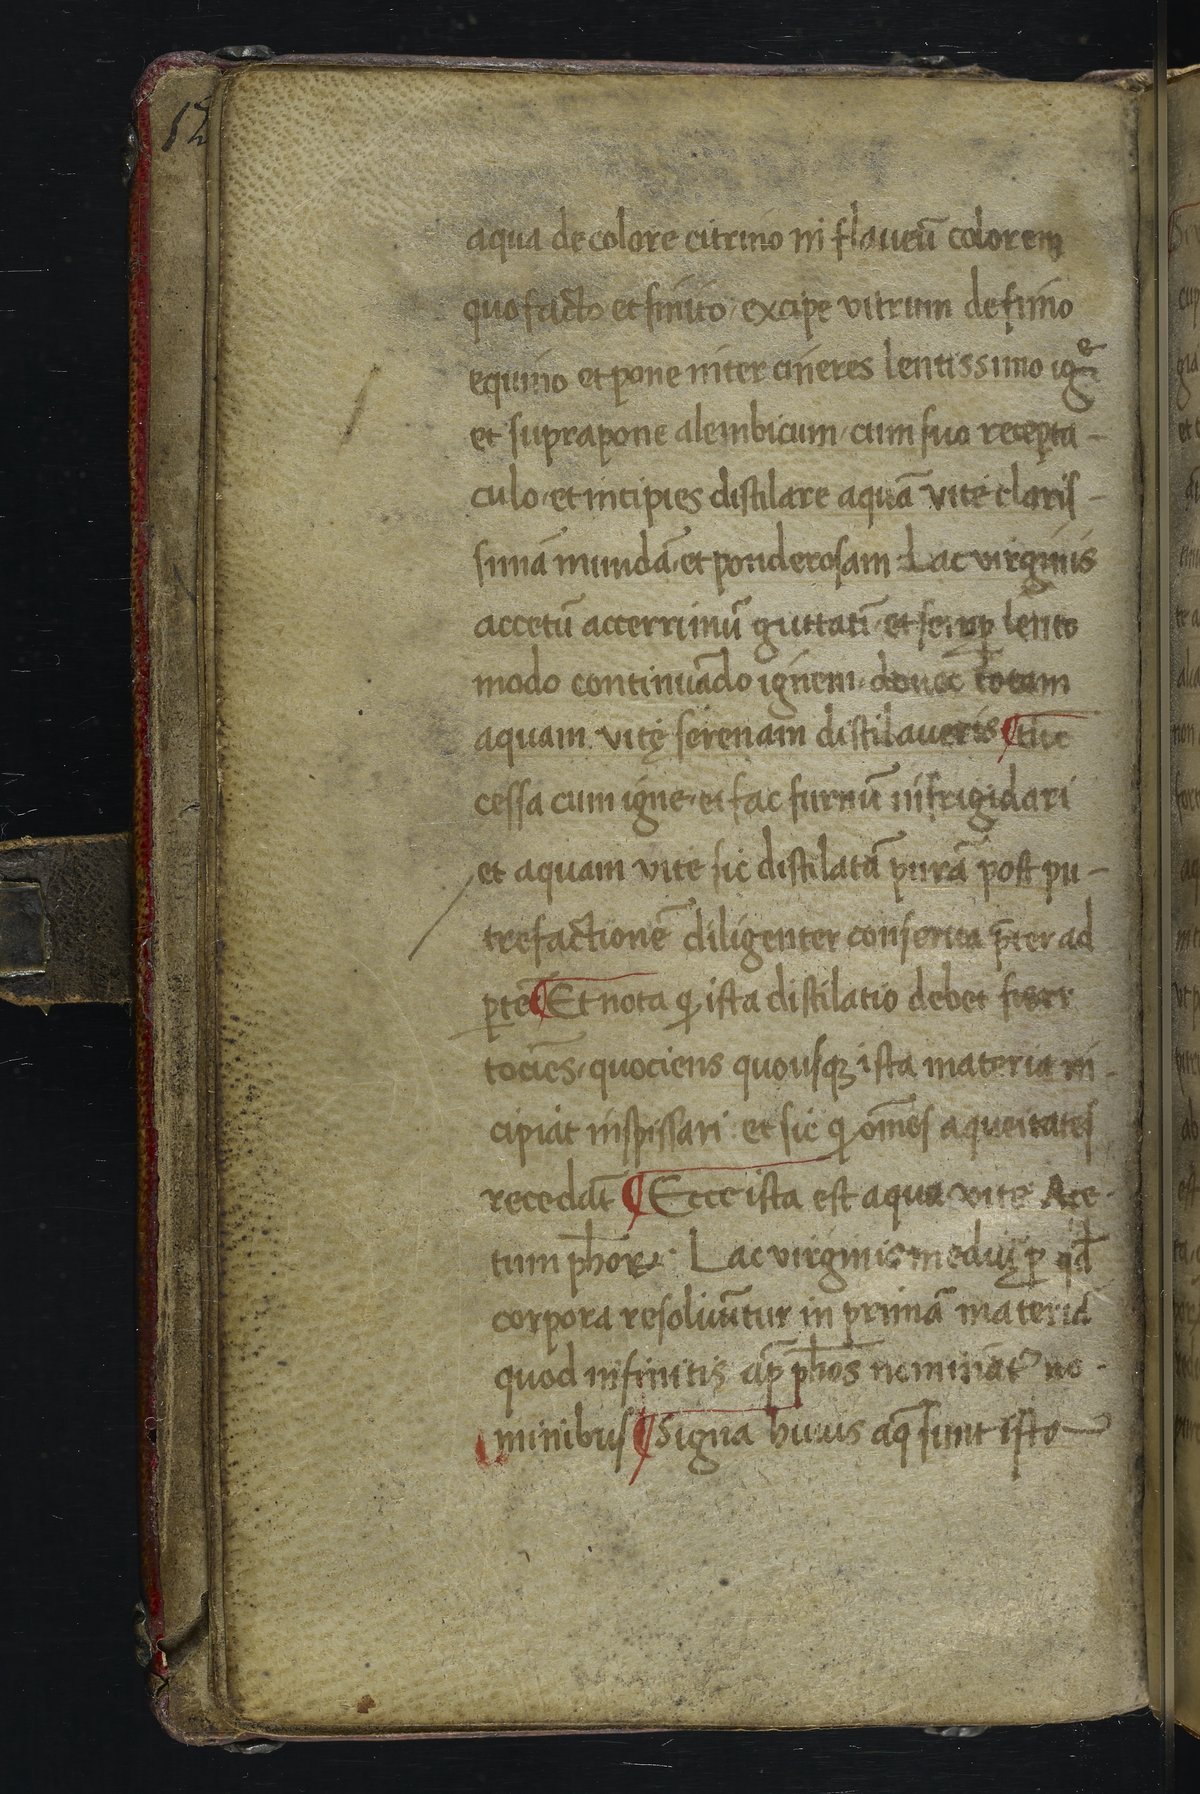 12
aqua de colore citrino in flaueū colorem
quo facto et finito, excipe vitrum de fimo
equino et pone inter cineres lentissimo igne
et suprapone alembicum, cum suo recepta-
culo, et incipies distilare aquā vite claris-
simā mundā, et ponderosam Lac virginis
accetū accerrimū guttatī, et semp lento
modo continuādo ignem, donec totam
aquam vitę serenam distilaueris ¶ tūc
cessa cum igne, et fac furnū infrigidari
et aquam vite sic distilatā purā post pu-
trefactionē diligenter conserua p̄ter ad
ptē ¶ Et nota ꝙ ista distilatio debet fieri
tociēs, quociens quousqꝫ ista materia in-
cipiat inspissari et sic ꝙ om̄es aqueitates
recedāt ¶ Ecce ista est aqua vite Ace-
tum ph̄oꝝ. Lac virginis mediū p qd̄
corpora resoluūtur in primā materiā
quod infinitis ap̄ ph̄os nominat᷑ no-
minibus ¶ Signa huius aq̄ sunt isto